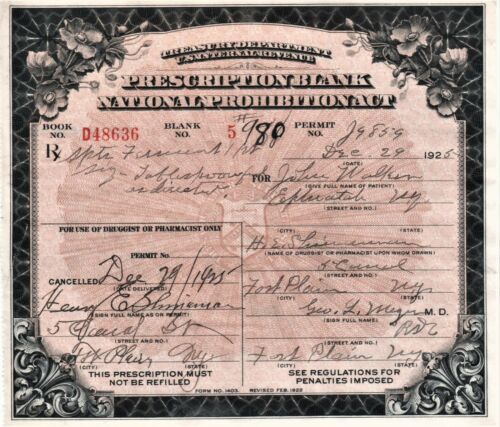 TREASURY DEPARTMENT
U.S. INTERNAL REVENUE
PRESCRIPTION BLANK
NATIONAL PROHIBITION ACT
BOOK NO. D48636 BLANK NO. 5 PERMIT NO.
Dec. 29 1925
Rx Spts Frumenti
Sig - Tablespoonful
as directed
FOR John Walker
(GIVE FULL NAME OF PATIENT)
Ephratah NY
(STREET AND NO.)
(CITY) (STATE)
FOR USE OF DRUGGIST OR PHARMACIST ONLY
(NAME OF DRUGGIST OR PHARMACIST UPON WHOM DRAWN)
PERMIT NO.
5 Canal
(STREET AND NO.)
CANCELLED Dec 29/1925
(DATE DELIVERED)
Fort Plain NY
(CITY) (STATE)
Henry E.
(SIGN FULL NAME AS ON PERMIT)
Geo. L. M.D.
(SIGN FULL NAME)
5 Canal St
(STREET AND NO.)
(STREET AND NO.)
Ft Plain NY
(CITY) (STATE)
Fort Plain NY
(CITY) (STATE)
THIS PRESCRIPTION MUST
NOT BE REFILLED
FORM NO. 1403. REVISED FEB. 1922
SEE REGULATIONS FOR
PENALTIES IMPOSED